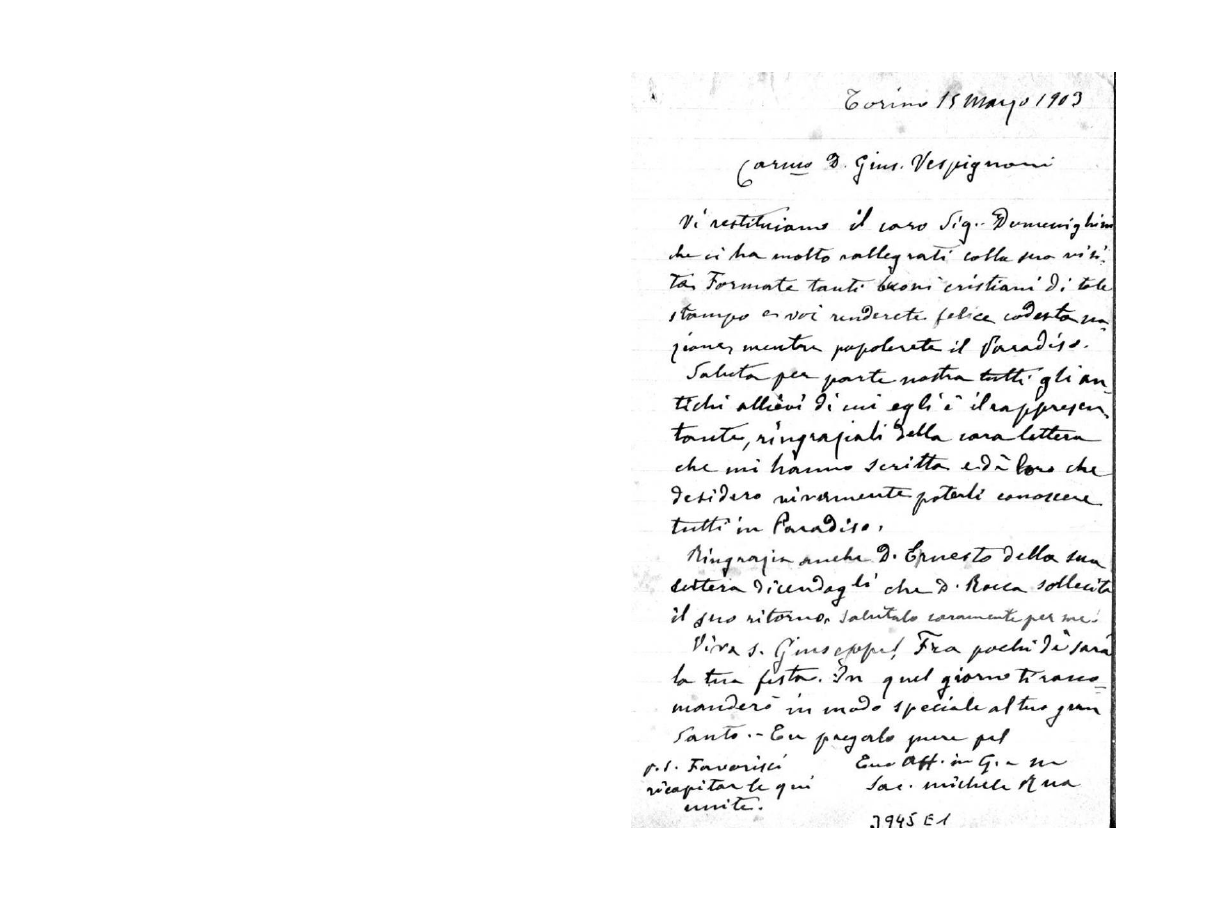 Torino 15 Marzo 1903
Carmo D. Gius. Vespignani
Vi restituiamo il caro Sig. Domenighini
che ci ha molto rallegrati colla sua visi-
ta. Formate tanti buoni cristiani di tale
stampo e voi renderete felice codesta na-
zione, mentre popolerete il Paradiso.
Saluta per parte nostra tutti gli an-
tichi allievi di cui egli è il rappresen-
tante, ringraziali della cara lettera
che mi hanno scritta e dà loro che
desidero vivamente poterli conoscere
tutti in Paradiso.
Ringrazia anche D. Ernesto della sua
lettera dicendogli che D. Rocca sollecita
il suo ritorno. Salutalo caramente per me.
Viva S. Giuseppe! Fra pochi dì sarà
la tua festa. In quel giorno ti racco-
manderò in modo speciale al tuo gran
Santo. - Tu pregalo pure pel
Tuo Aff. in G. e M
Sac. Michele Rua
P.S. Favorisci
ricapitar le qui
unite.
3945 E1